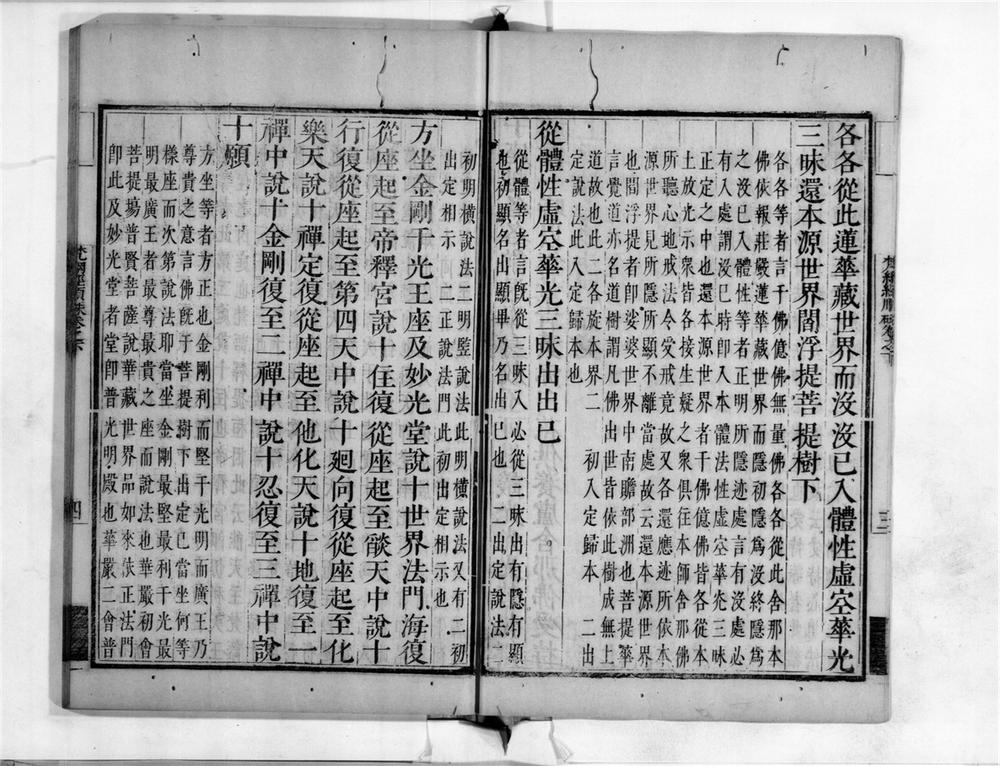 各各從此蓮華藏世界而沒沒已入體性虛空華光
三昧還本源世界閻浮提菩提樹下
各各等者言千佛億佛無量佛各各從此舍那本
佛依報莊嚴蓮華藏世界而隱初隱爲沒終隱爲
之沒已入體性等者正明所隱迹處言有沒處必
有入處謂沒已時即入本體法性虛空華光三昧
正定之中也還本源世界者千佛億佛皆各從本
土放光示衆皆各接生疑之衆俱往本師舍那佛
所聽心地戒法今各受戒竟故又各還應迹所依本
源世界見所隱所顯不離當處故云還本源世界
也閻浮提者即娑婆世界中南贍部洲也菩提華
言覺道亦名道樹謂凡佛出世皆依此樹成無上
道故也此二各旋本界二 初入定歸本 二出
定說法此入定歸本也
從體性虛空華光三昧出出已
從體等者言既從三昧入必從三昧出有隱有顯
也初顯名出顯畢乃名出已也 二出定說法二
初明橫說法二明竪說法此明橫說法又有二初
出定相示二正說法門此初出定相示也
方坐金剛千光王座及妙光堂說十世界法門海復
從座起至帝釋宮說十住復從座起至燄天中說十
行復從座起至第四天中說十廻向復從座起至化
樂天說十禪定復從座起至他化天說十地復至一
禪中說十金剛復至二禪中說十忍復至三禪中說
十願
方坐等者方正也金剛利而堅千光明而廣王乃
尊貴之意言佛既于菩提樹下出定已當坐何等
樣座而次第說法耶當坐金剛最堅最利千光最
明最廣王者最尊最貴之座而說法也華嚴初會
菩提場普賢菩薩說華藏世界品如來依正法門
即此及妙光堂者堂即普光明殿也華嚴二會普
三
四